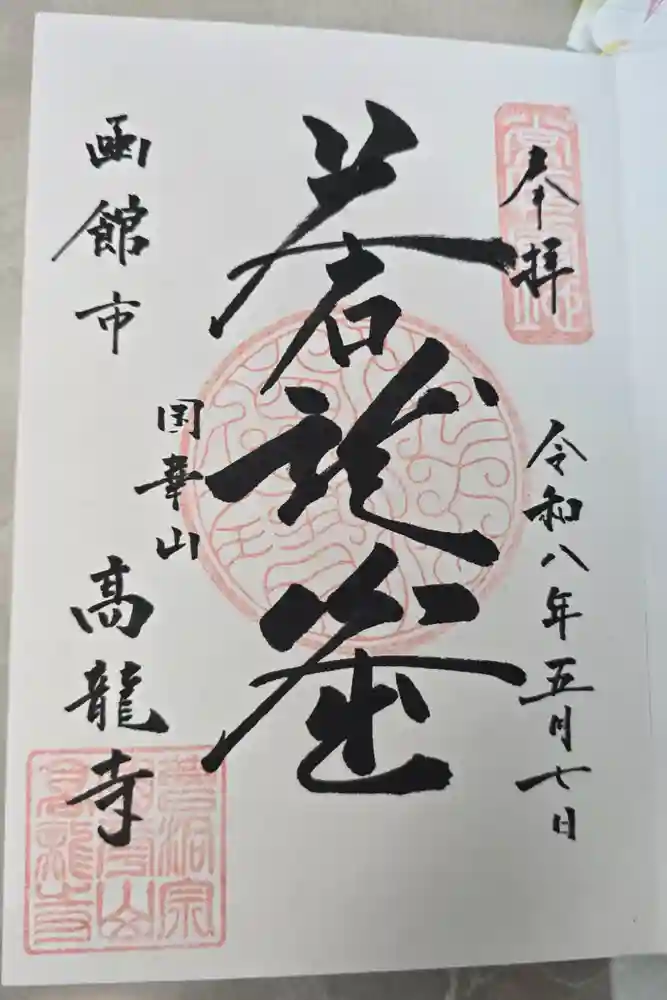 奉拝
令和八年五月七日
蒼龍窟
函館市
国華山
高龍寺
曹洞宗
國華山
高龍寺